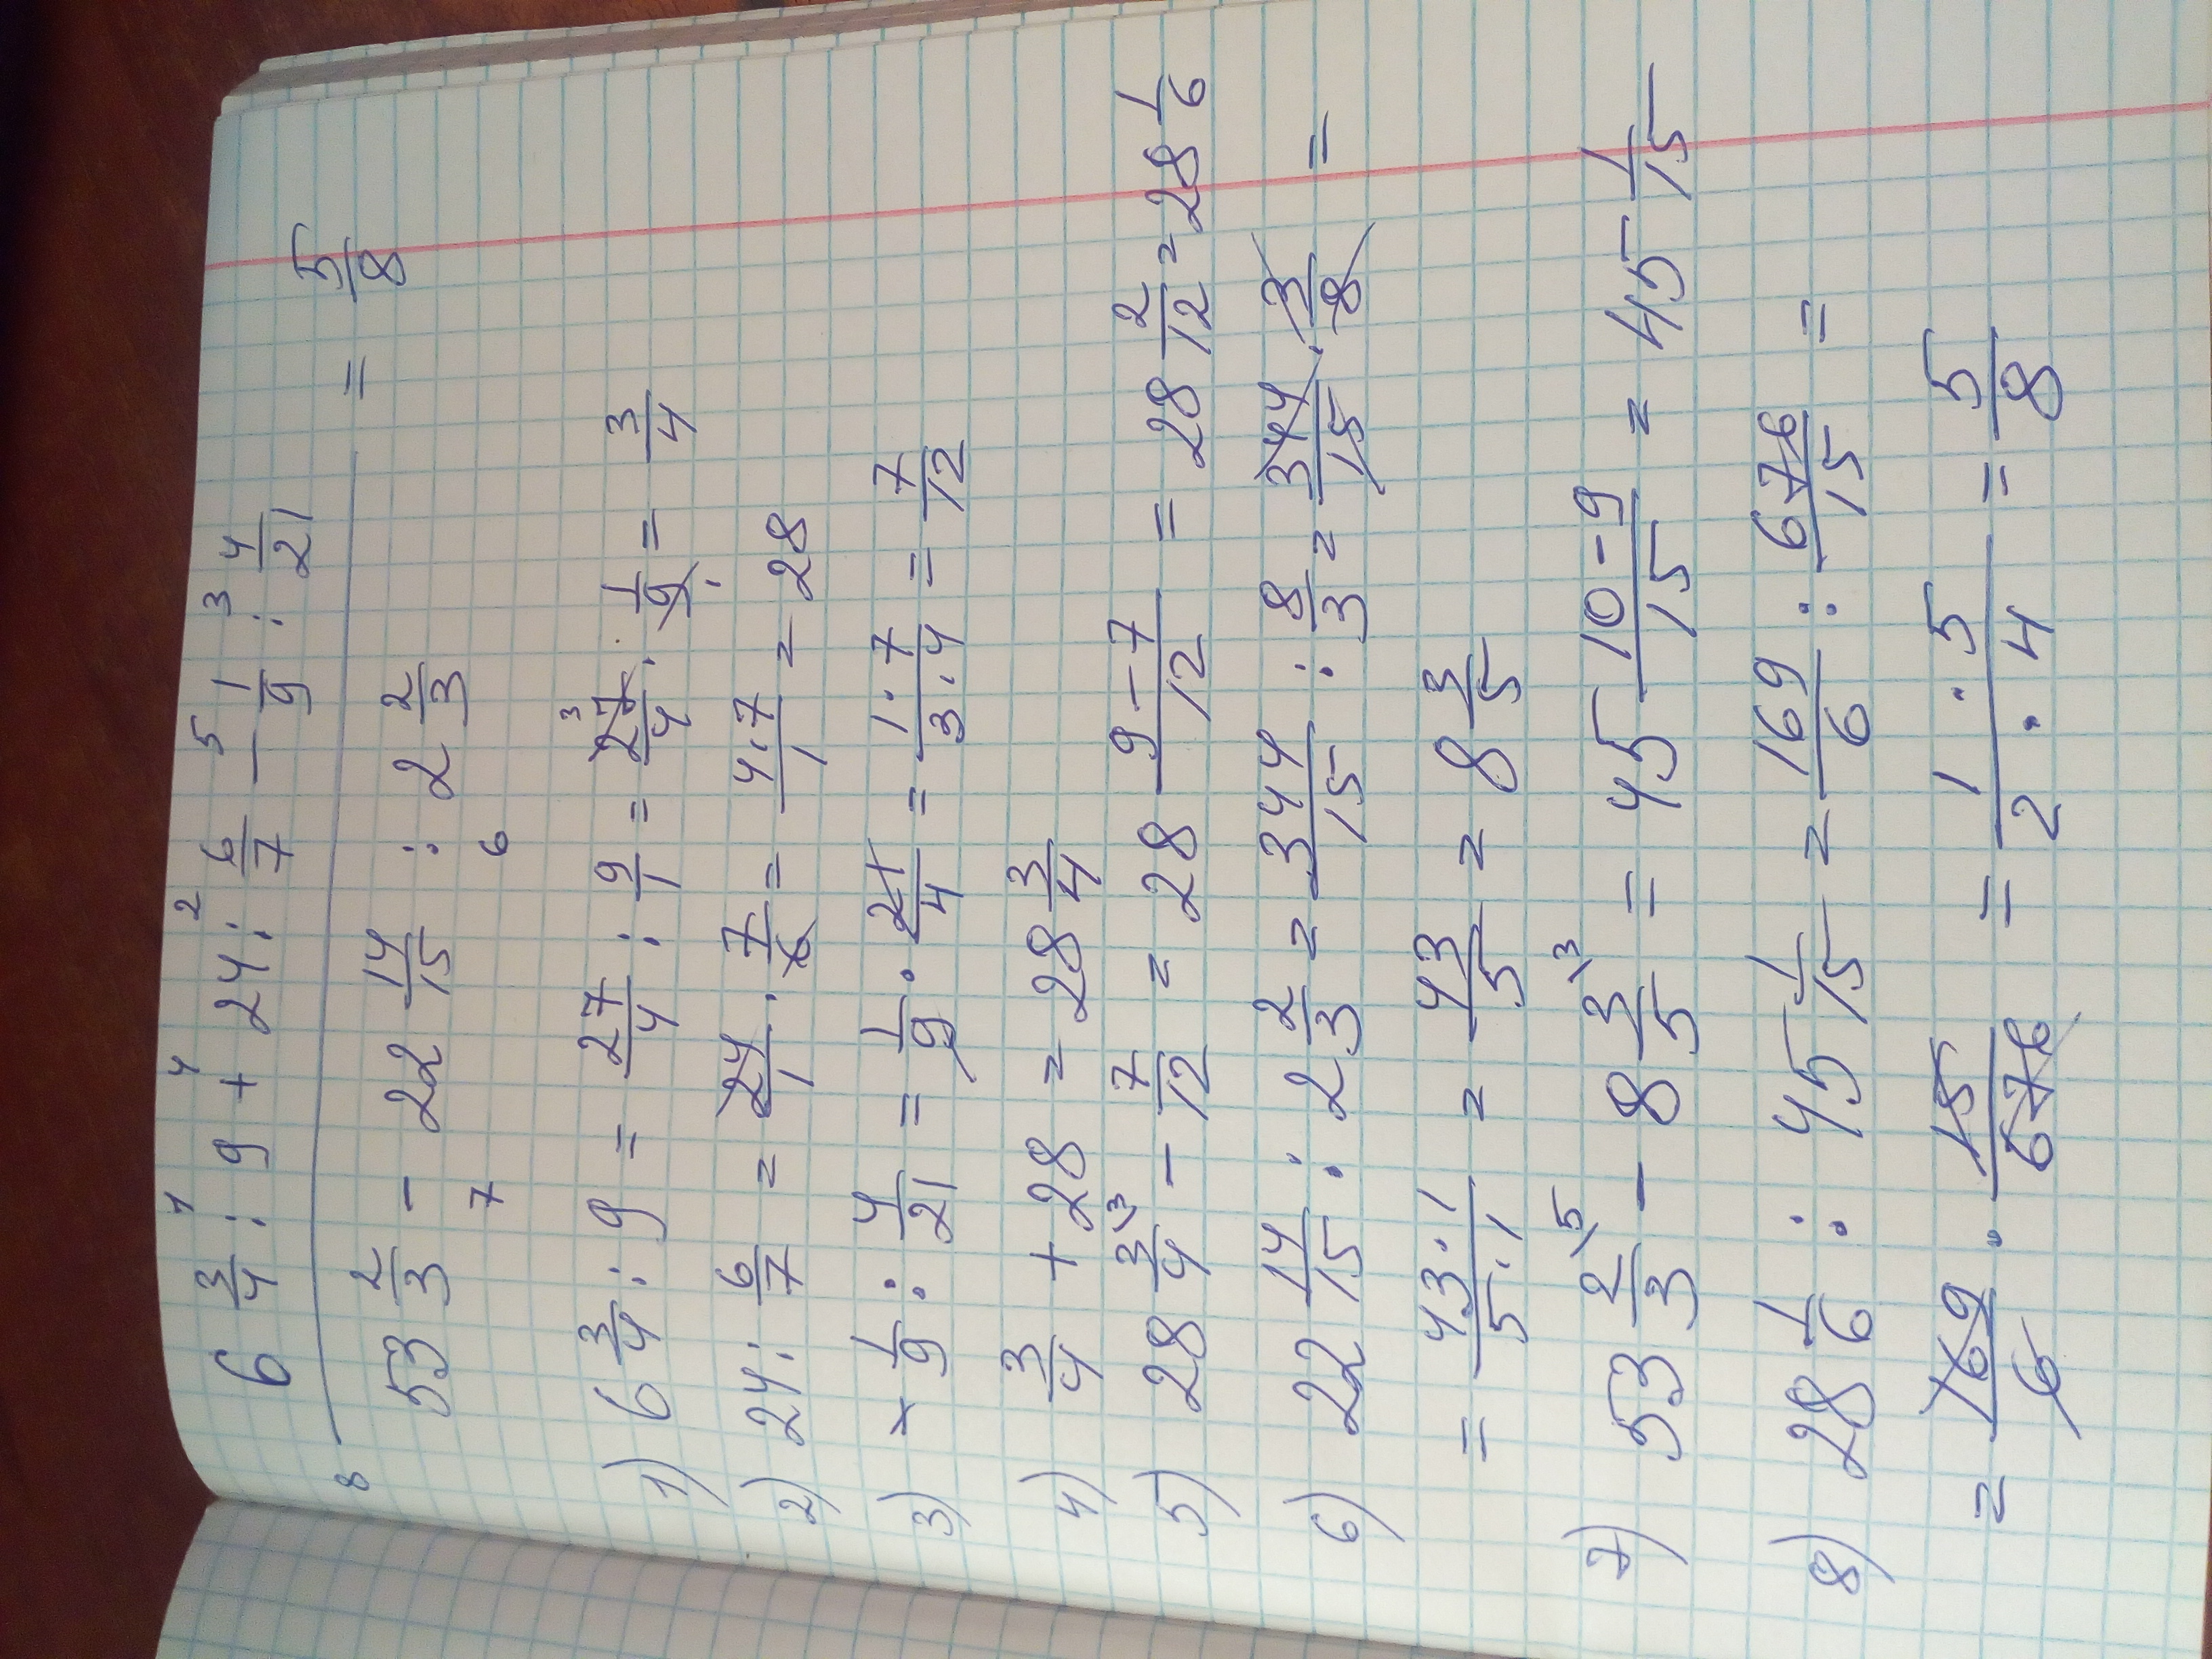 1 4 2 5 3
6 3/4 : 9 + 24 : 6/7 - 1/9 : 4/21
8 ———————————— = 5/8
53 2/3 - 22 14/15 : 2 2/3
7 6
1) 6 3/4 : 9 = 27/4 : 9/1 = 27/4 · 1/9 = 3/4
2) 24 : 6/7 = 24/1 · 7/6 = 4·7/1 = 28
3) 1/9 : 4/21 = 1/9 · 21/4 = 1·7/3·4 = 7/12
4) 3/4 + 28 = 28 3/4
5) 28 3/4 \3 - 7/12 = 28 9-7/12 = 28 2/12 = 28 1/6
6) 22 14/15 : 2 2/3 = 344/15 : 8/3 = 344/15 · 3/8 =
= 43·1/5·1 = 43/5 = 8 3/5
7) 53 2/3 \5 - 8 3/5 \3 = 45 10-9/15 = 45 1/15
8) 28 1/6 : 45 1/15 = 169/6 : 676/15 =
= 169/6 · 15/676 = 1·5/2·4 = 5/8